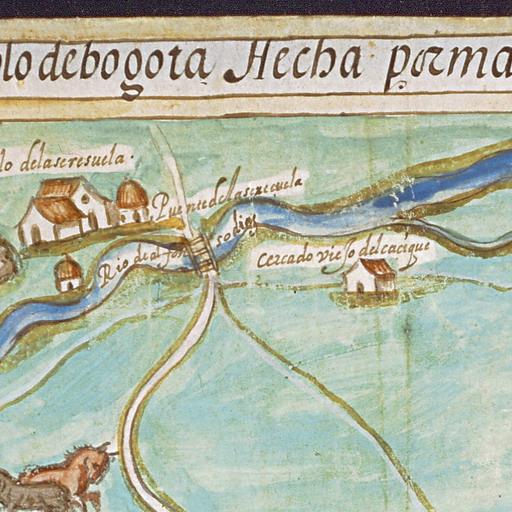 olo debogota Hecha porma
lo delaseresuela.
Puente delaserecuela
Rio de alfonso dias
cercado viejo del cacique